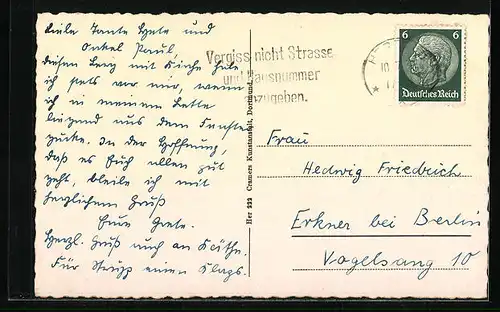 Liebe Tante Hete und
Onkel Paul,
diesen Berg mit Kirche habe
ich stets vor mir, wenn
ich in meinem Bette
liegend aus dem Fenster
gucke. In der Hoffnung,
daß es Euch allen gut
geht, bleibe ich mit
herzlichem Gruß
Eure Grete.
Herzl. Gruß auch an Käthe.
Für Strupp einen Klaps.
Her 222 Cramers Kunstanstalt, Dortmund
Vergiss nicht Strasse
und Hausnummer
anzugeben.
6 6
Deutsches Reich
Frau
Hedwig Friedrich
Erkner bei Berlin
Vogelsang 10